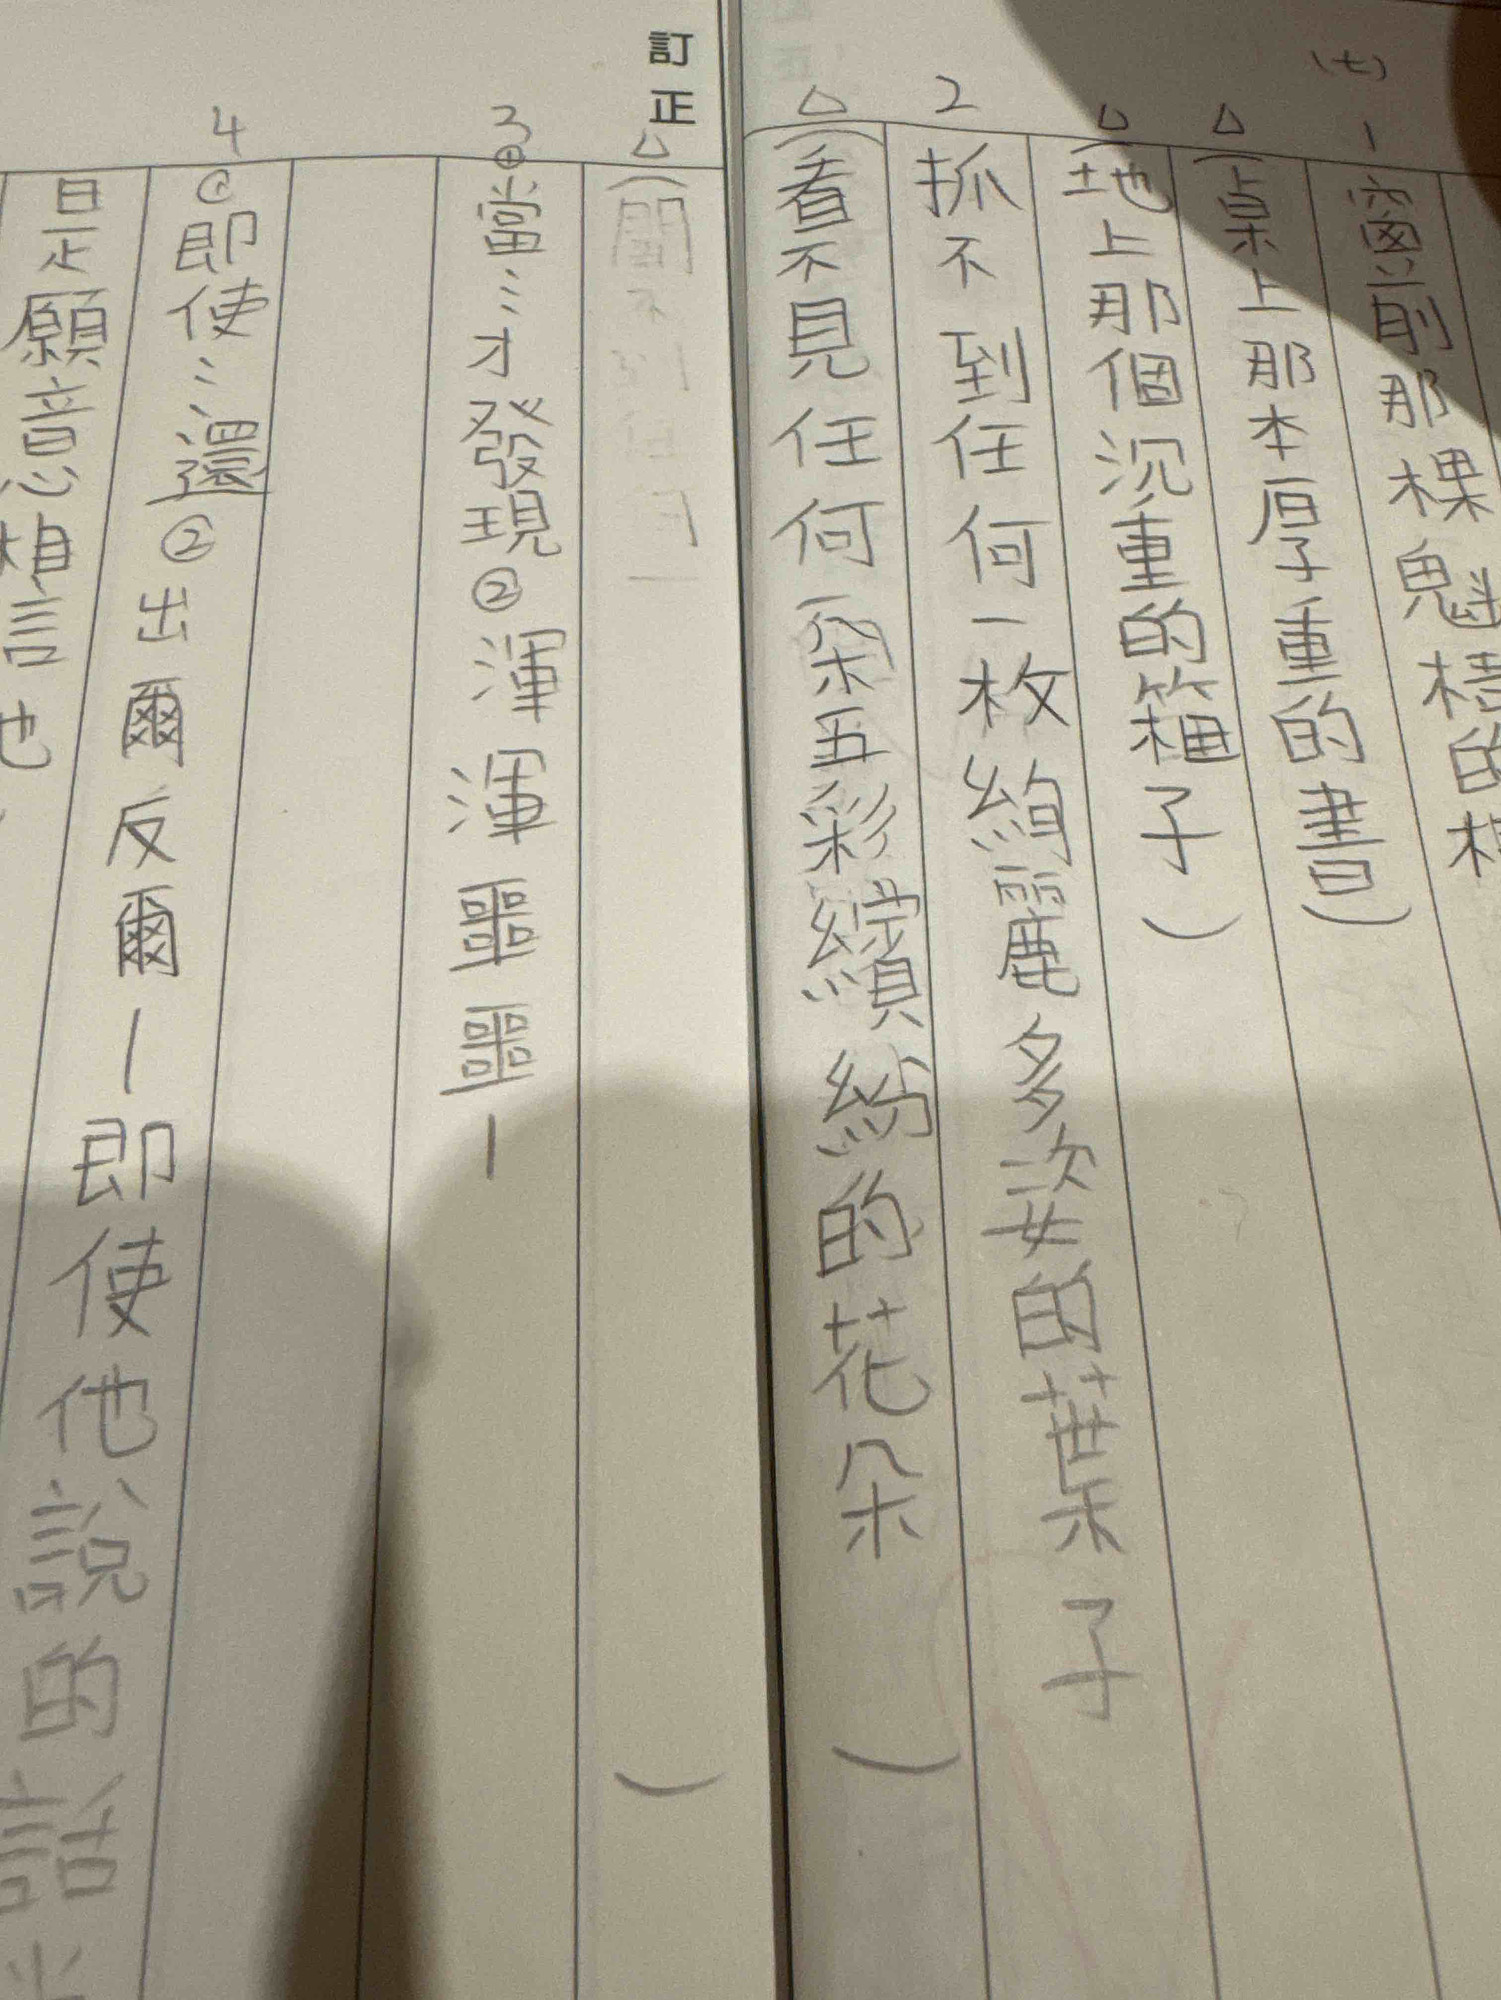 (七)
1 窗前那棵魁梧的
△(桌上那本厚重的書)
△(地上那個沉重的箱子)
2 抓不到任何一枚絢麗多姿的葉子
△(看不見任何一朵五彩繽紛的花朵)
訂正
△(聞不到任何一)
3 ①當……才發現②渾渾噩噩—
4 ①即使……還②出爾反爾—即使他說的話
是願意相信他